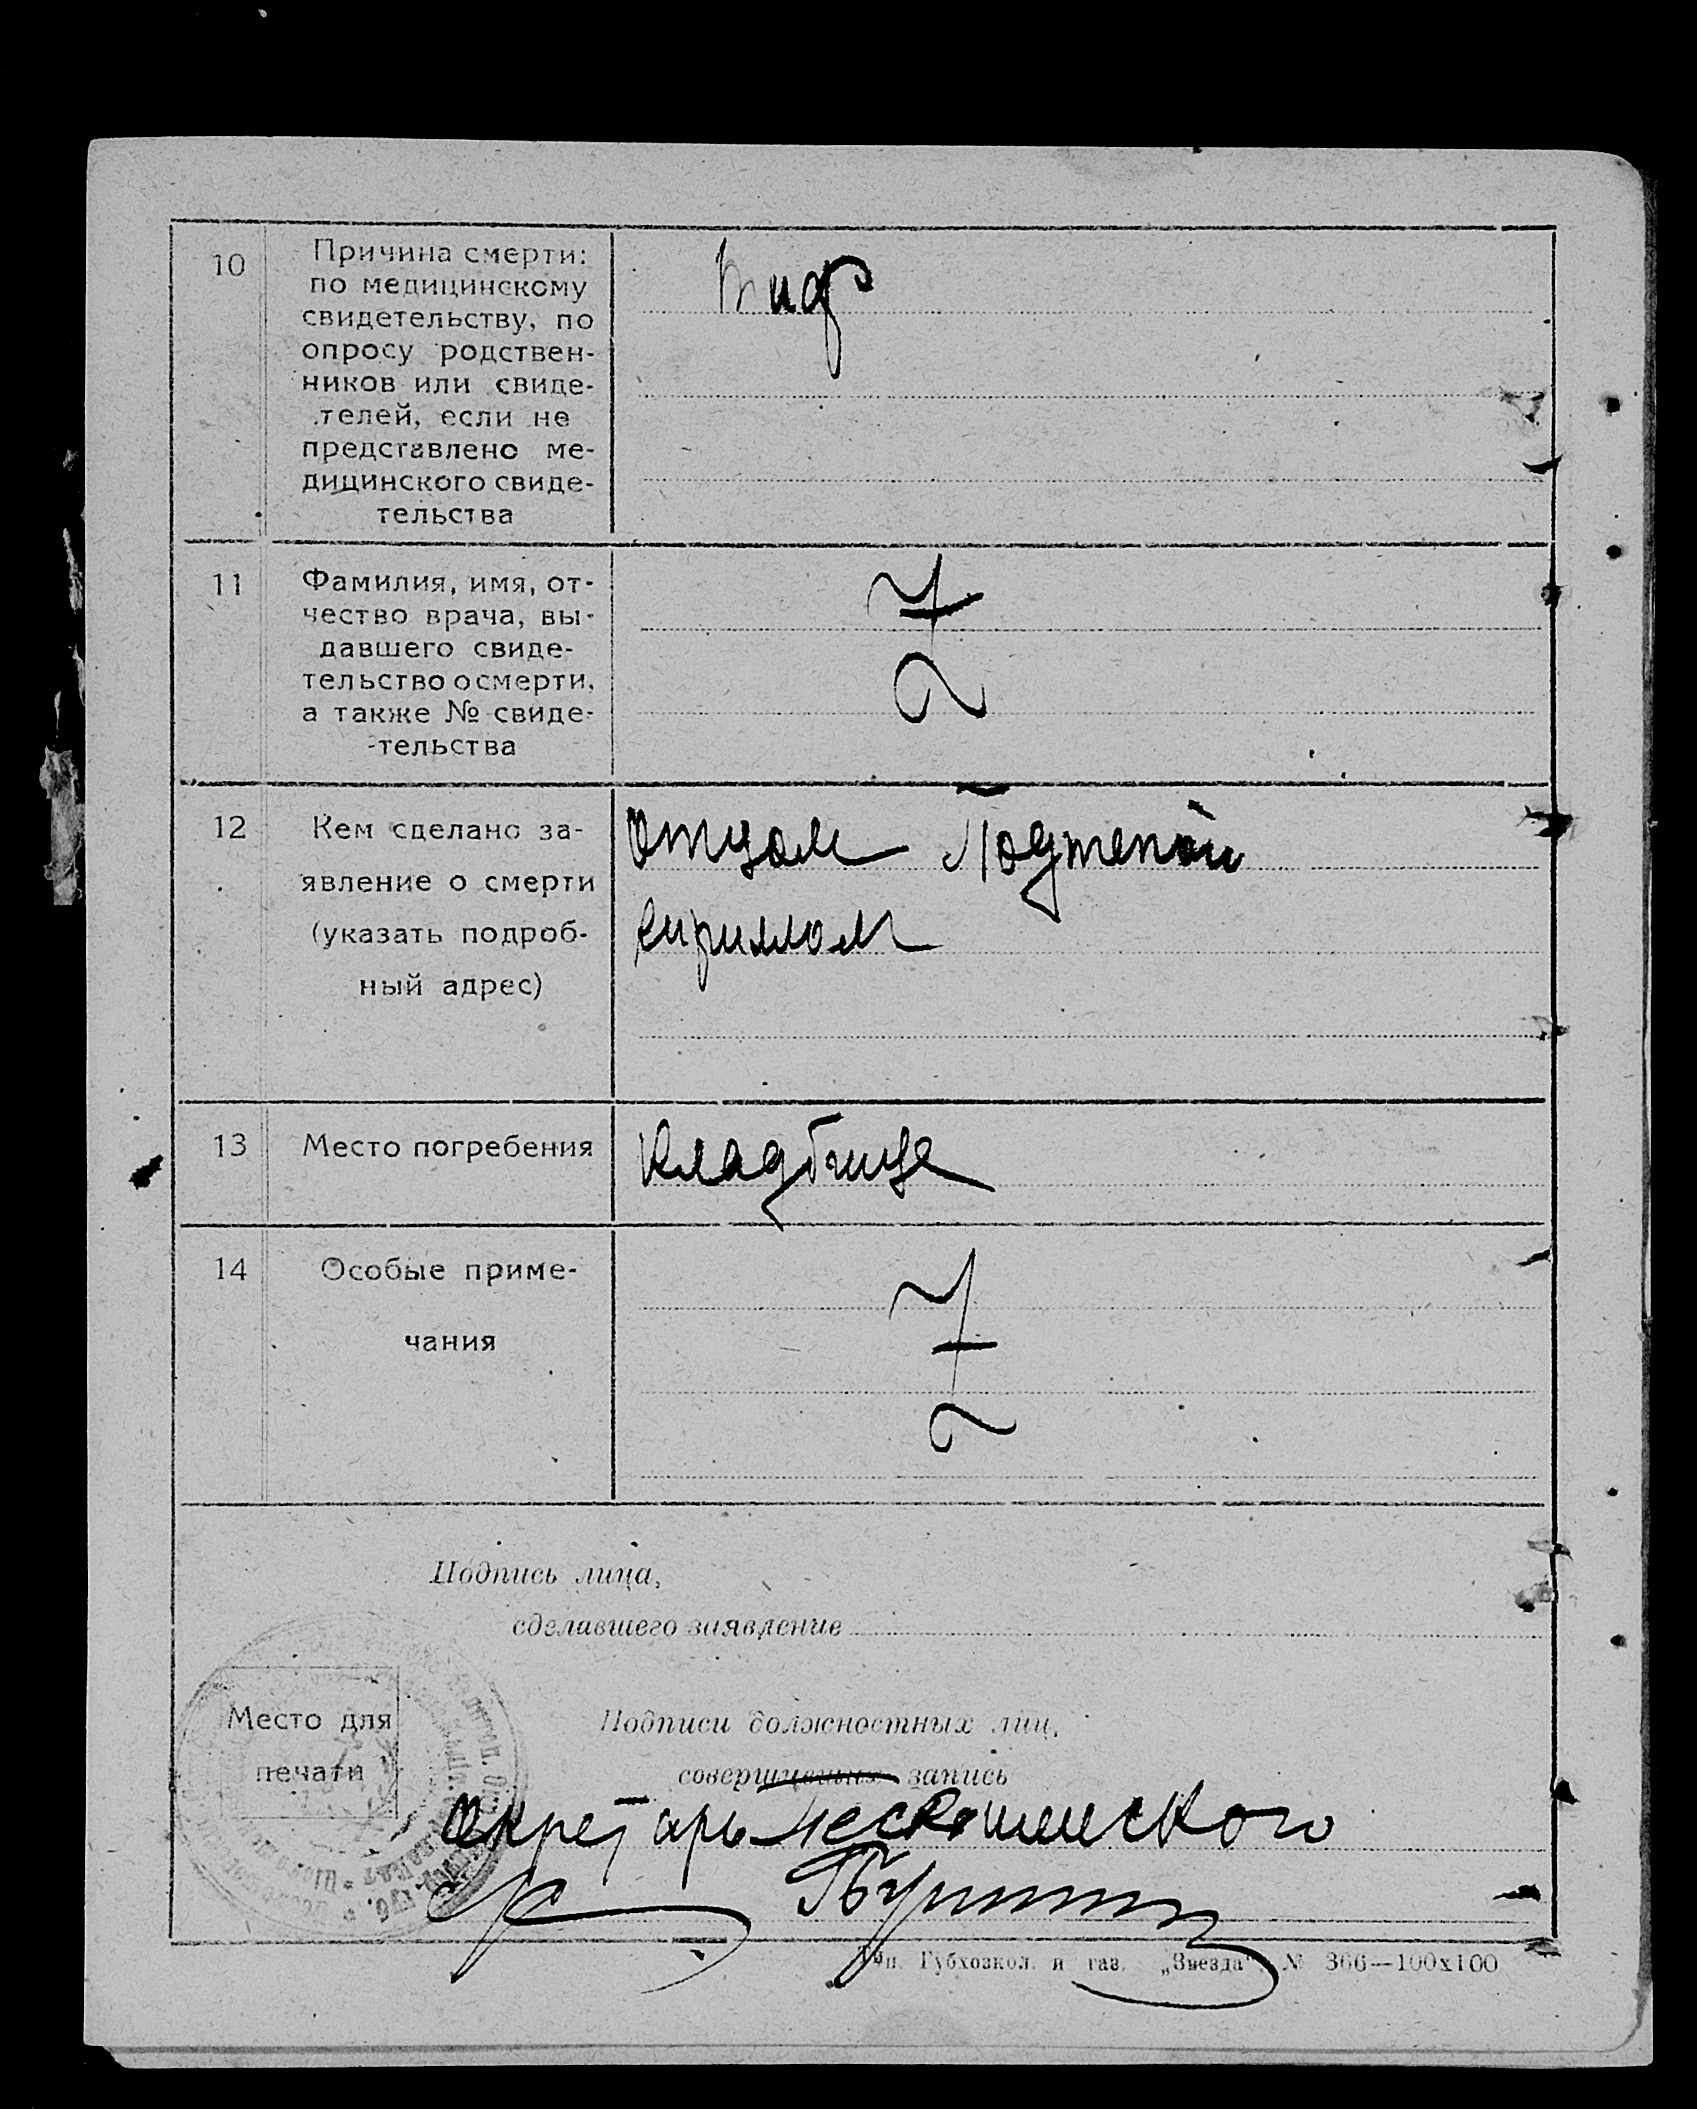 10
Причина смерти:
по медицинскому
свидетельству, по
опросу родствен-
ников или свиде-
телей, если не
представлено ме-
дицинского свиде-
тельства
тиф
11
Фамилия, имя, от-
чество врача, вы-
давшего свиде-
тельство о смерти,
а также № свиде-
тельства
12
Кем сделано за-
явление о смерти
(указать подроб-
ный адрес)
Отцом
Кириллом
13
Место погребения
Кладбище
14
Особые приме-
чания
Подпись лица,
сделавшего заявление
Место для
печати
Подписи должностных лиц,
совершивших запись
Секретарь
Тип. Губхозкол. и газ. „Звезда“. № 366—100х100